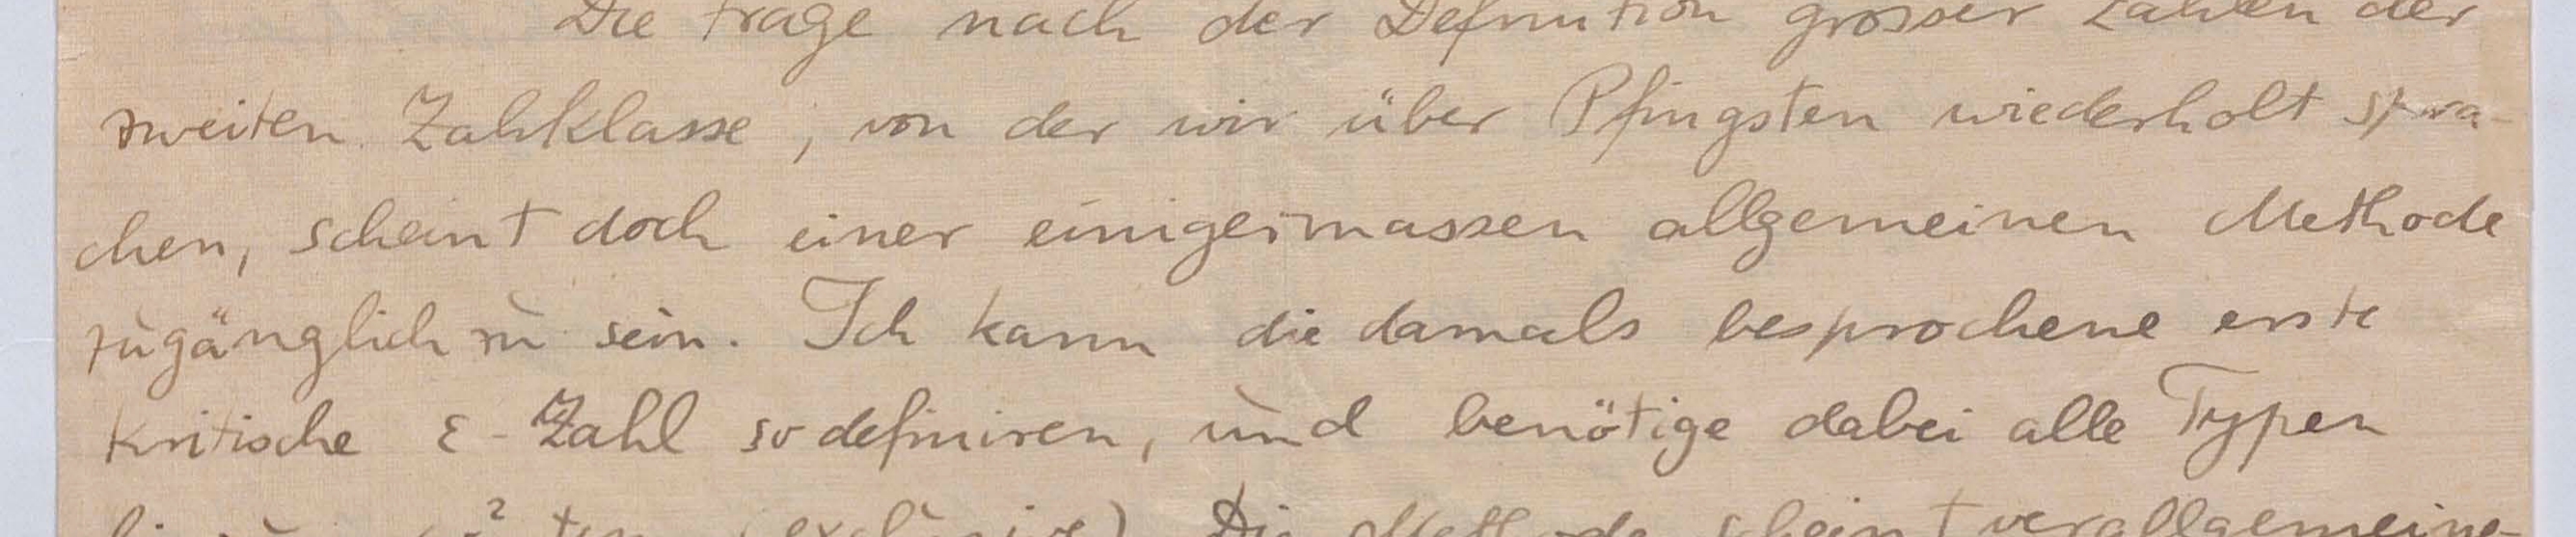 Die Frage nach der Definition grosser Zahlen der
zweiten Zahlklasse, von der wir über Pfingsten wiederholt spra-
chen, scheint doch einer einigermassen allgemeinen Methode
zugänglich zu sein. Ich kann die damals besprochene erste
kritische ε-Zahl so definiren, und benötige dabei alle Typen
bis zum ω² ten (exclusive). Die Methode scheint verallgemeine-